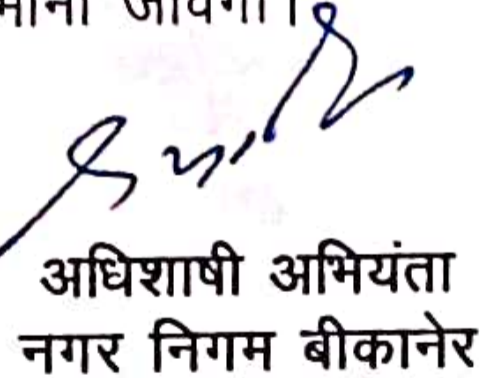 माना जावेगा।
अधिशाषी अभियंता
नगर निगम बीकानेर